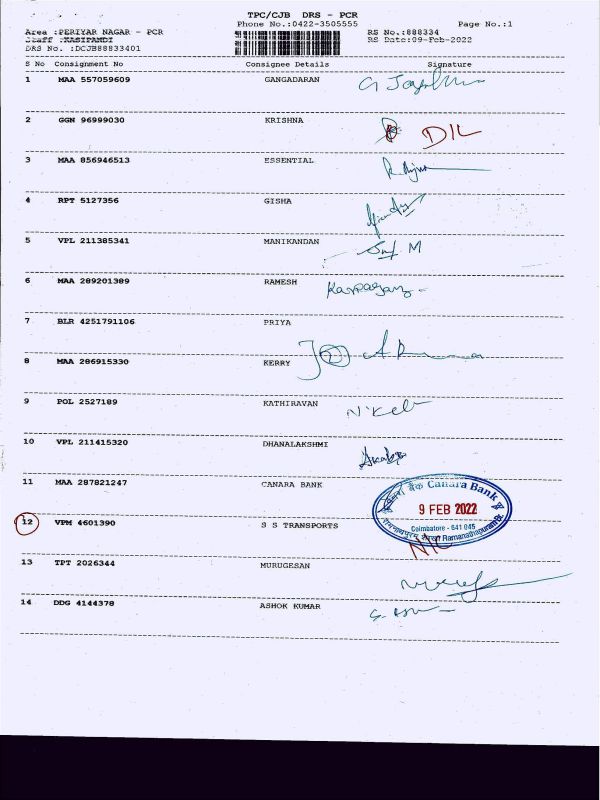 TPC/CJB DRS - PCR
Phone No.:0422-3505555 Page No.:1
Area :PERIYAR NAGAR - PCR RS No.:888334
Staff :KASIPANDI RS Date:09-Feb-2022
DRS No. :DCJB88833401
S No Consignment No Consignee Details Signature
1 MAA 557059609 GANGADARAN
2 GGN 96999030 KRISHNA DIL
3 MAA 856946513 ESSENTIAL
4 RPT 5127356 GISHA
5 VPL 211385341 MANIKANDAN
6 MAA 289201389 RAMESH
7 BLR 4251791106 PRIYA
8 MAA 286915330 KERRY
9 POL 2527189 KATHIRAVAN
10 VPL 211415320 DHANALAKSHMI
11 MAA 287821247 CANARA BANK
बैंक Canara Bank
9 FEB 2022
Coimbatore - 641 045
Ramanathapuram Br.
12 VPM 4601390 S S TRANSPORTS
13 TPT 2026344 MURUGESAN
14 DDG 4144378 ASHOK KUMAR